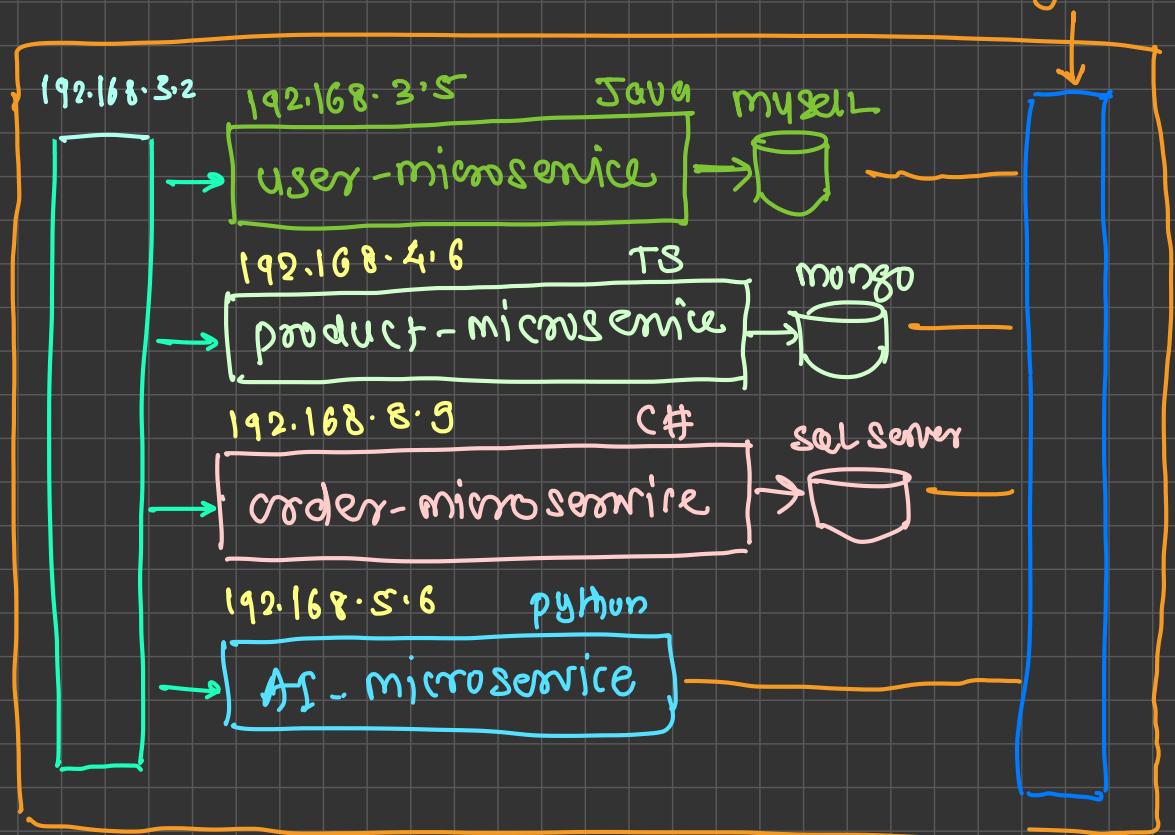 192.168.3.2
192.168.3.5 Java mysql
user-microservice
192.168.4.6 TS mongo
product-microservice
192.168.8.9 C# sql server
order-microservice
192.168.5.6 python
AI-microservice